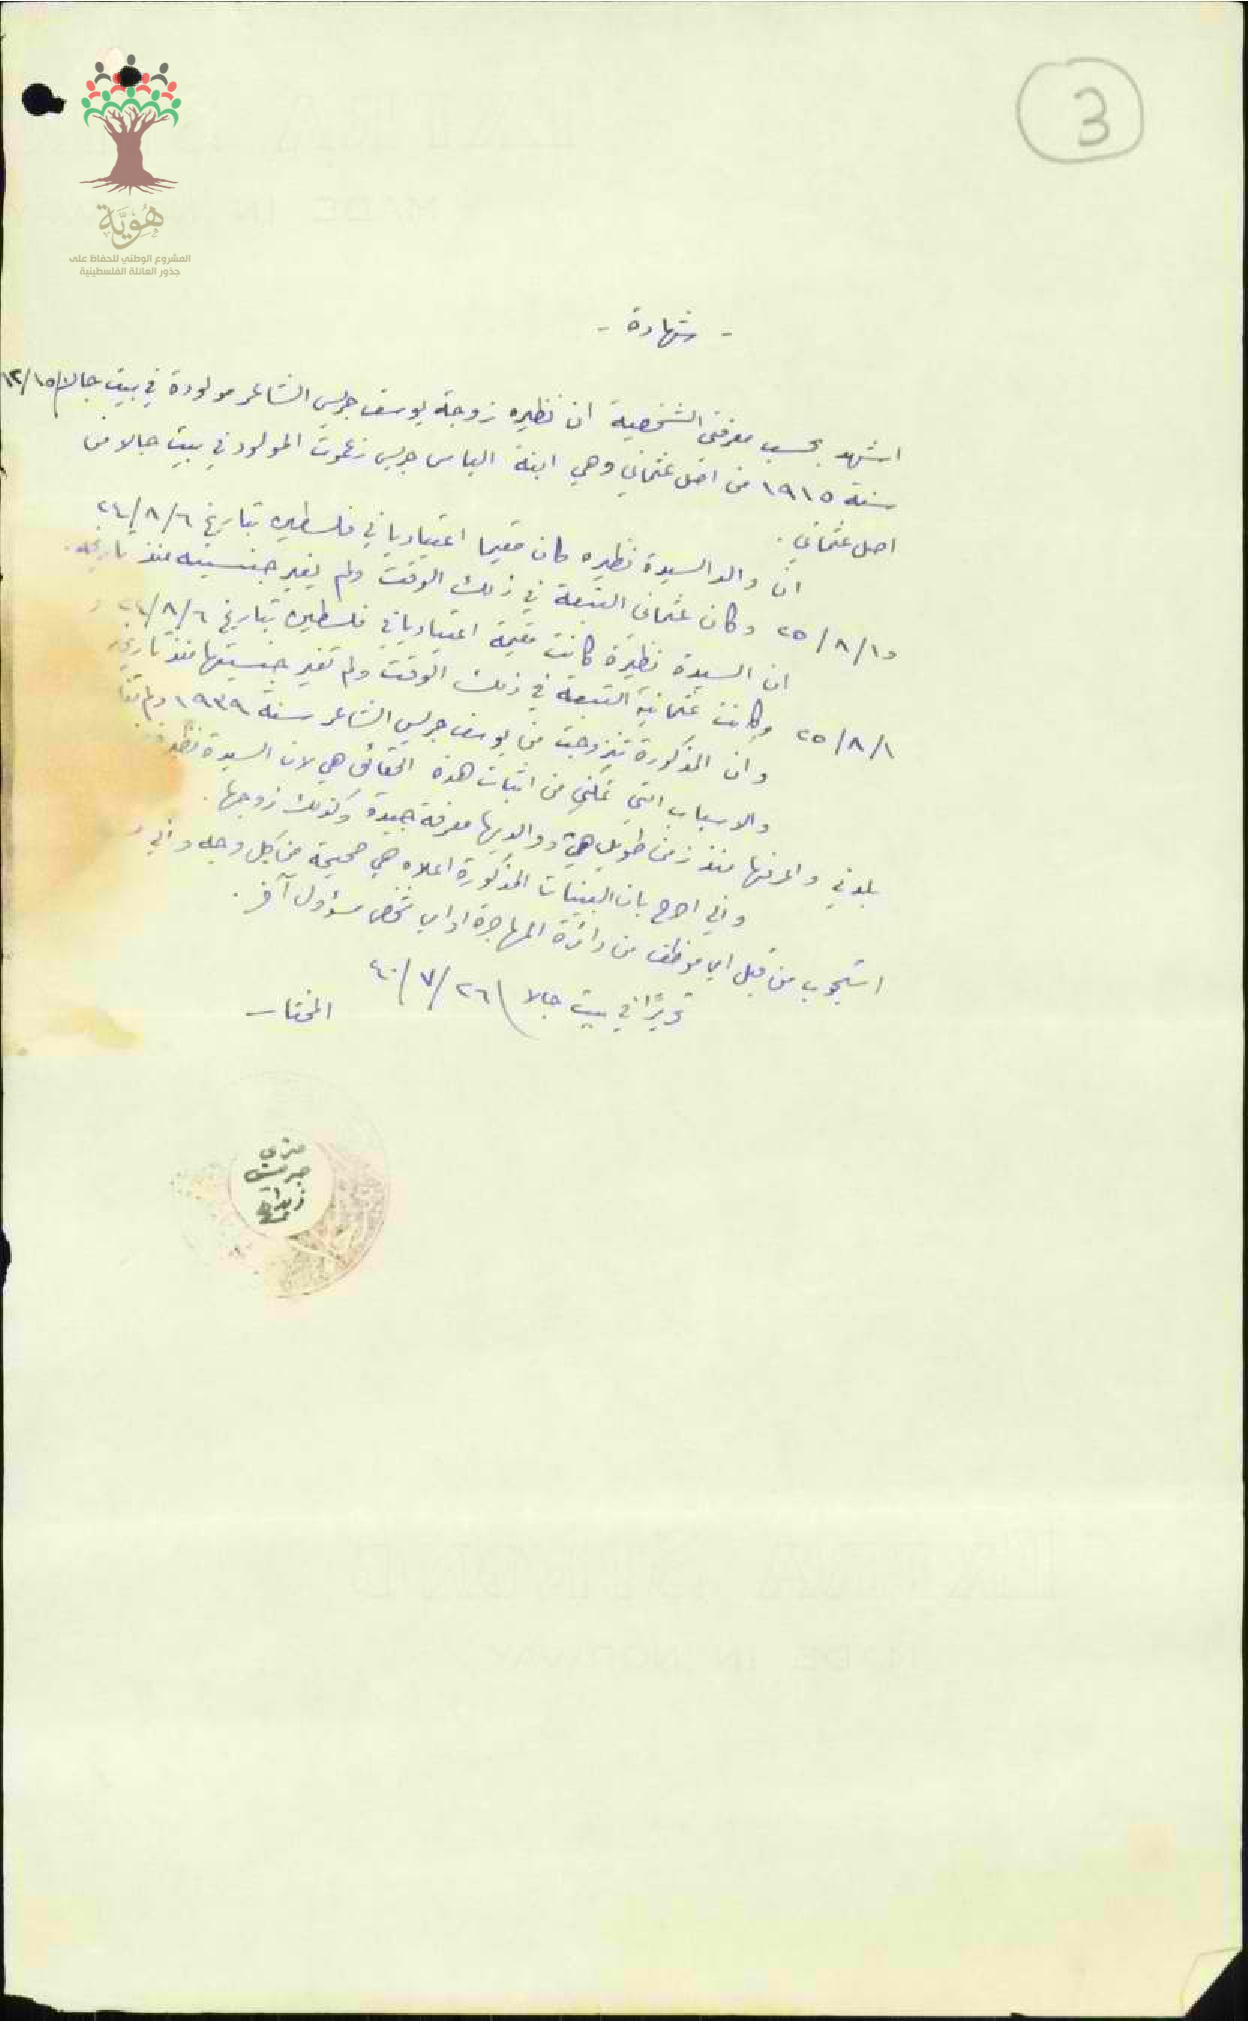 3
هُوِيَّة
المشروع الوطني للحفاظ على
جذور العائلة الفلسطينية
- شهادة -
اشهد بحسب معرفتي الشخصية ان نظيره زوجة يوسف جريس الشاعر مولودة في بيت جالا ١٢/١٥
سنة ١٩١٥ من اصل عثماني وهي ابنة الياس جريس زعموت المولود في بيت جالا من
اصل عثماني.
ان والد السيدة نظيره كان مقيما اعتياديا في فلسطين بتاريخ ٢٤/٨/٦
و ٢٥/٨/١ وكان عثماني التبعة في ذلك الوقت ولم يغير جنسيته منذ تاريخه.
ان السيدة نظيرة كانت مقيمة اعتياديا في فلسطين بتاريخ ٢٤/٨/٦ و
٢٥/٨/١ وكانت عثمانية التبعة في ذلك الوقت ولم تغير جنسيتها منذ تاريخه
وان المذكورة تزوجت من يوسف جريس الشاعر سنة ١٩٣٩ ولم
والاسباب التي تمكني من اثبات هذه الحقائق هي لان السيدة نظيره
بلدتي واعرفها منذ زمن طويل هي ووالديها معرفة جيدة وكذلك زوجها.
واني اصرح بان البينات المذكورة اعلاه هي صحيحة من كل وجه واني
استجوب من قبل اي موظف من دائرة المهاجرة او اي شخص مسؤول آخر.
تحريرًا في بيت جالا ٤٠/٧/٢٦
المختار
EXTRA STRONG
MADE IN NORWAY